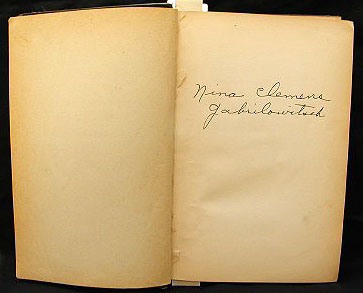 Nina Clemens
Gabrilowitsch